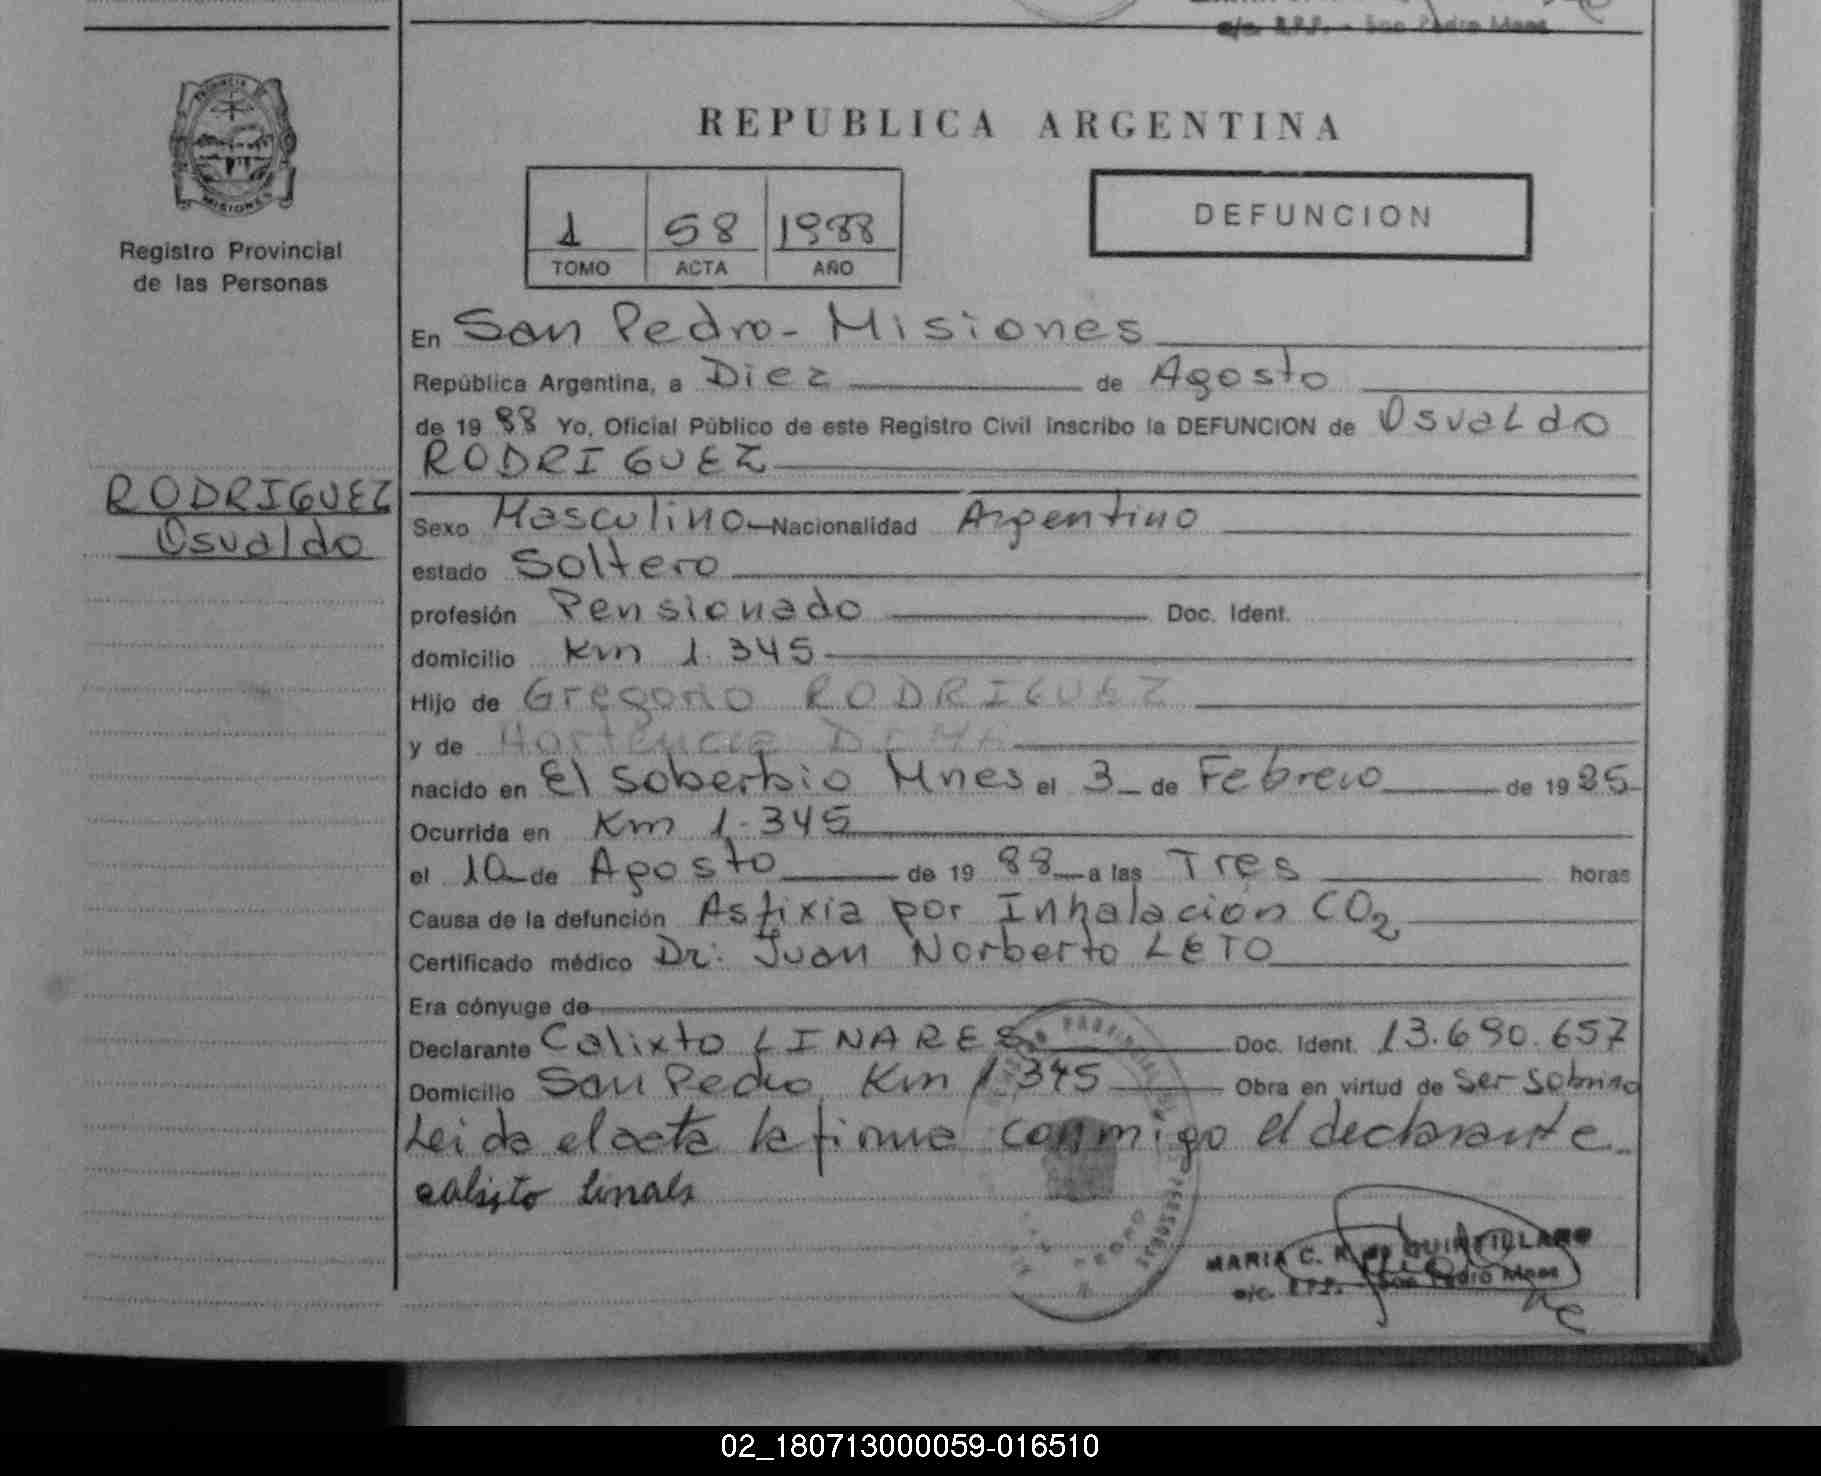 PROVINCIA
MISIONES
Registro Provincial
de las Personas
RODRIGUEZ
Osvaldo
REPUBLICA ARGENTINA
1 58 1988
TOMO ACTA AÑO
DEFUNCION
En San Pedro - Misiones
República Argentina, a Diez de Agosto
de 19 88 Yo, Oficial Público de este Registro Civil inscribo la DEFUNCION de Osvaldo
RODRIGUEZ
Sexo Masculino Nacionalidad Argentino
estado Soltero
profesión Pensionado Doc. Ident.
domicilio Km 1.345
Hijo de Gregorio RODRIGUEZ
y de Hortencia
nacido en El Soberbio Mnes el 3 de Febrero de 19
Ocurrida en Km 1.345
el 10 de Agosto de 19 88 a las Tres horas
Causa de la defunción Asfixia por Inhalación CO2
Certificado médico Dr: Juan Norberto LETO
Era cónyuge de
Declarante Calixto LINARES Doc. Ident. 13.690.657
Domicilio San Pedro Km 1.345 Obra en virtud de ser sobrino
Leida el acta la firma conmigo el declarante
calisto linals
MARIA C. R. de QUINTILLANO
a/c. R.P.P. - San Pedro Mnes
02_180713000059-016510